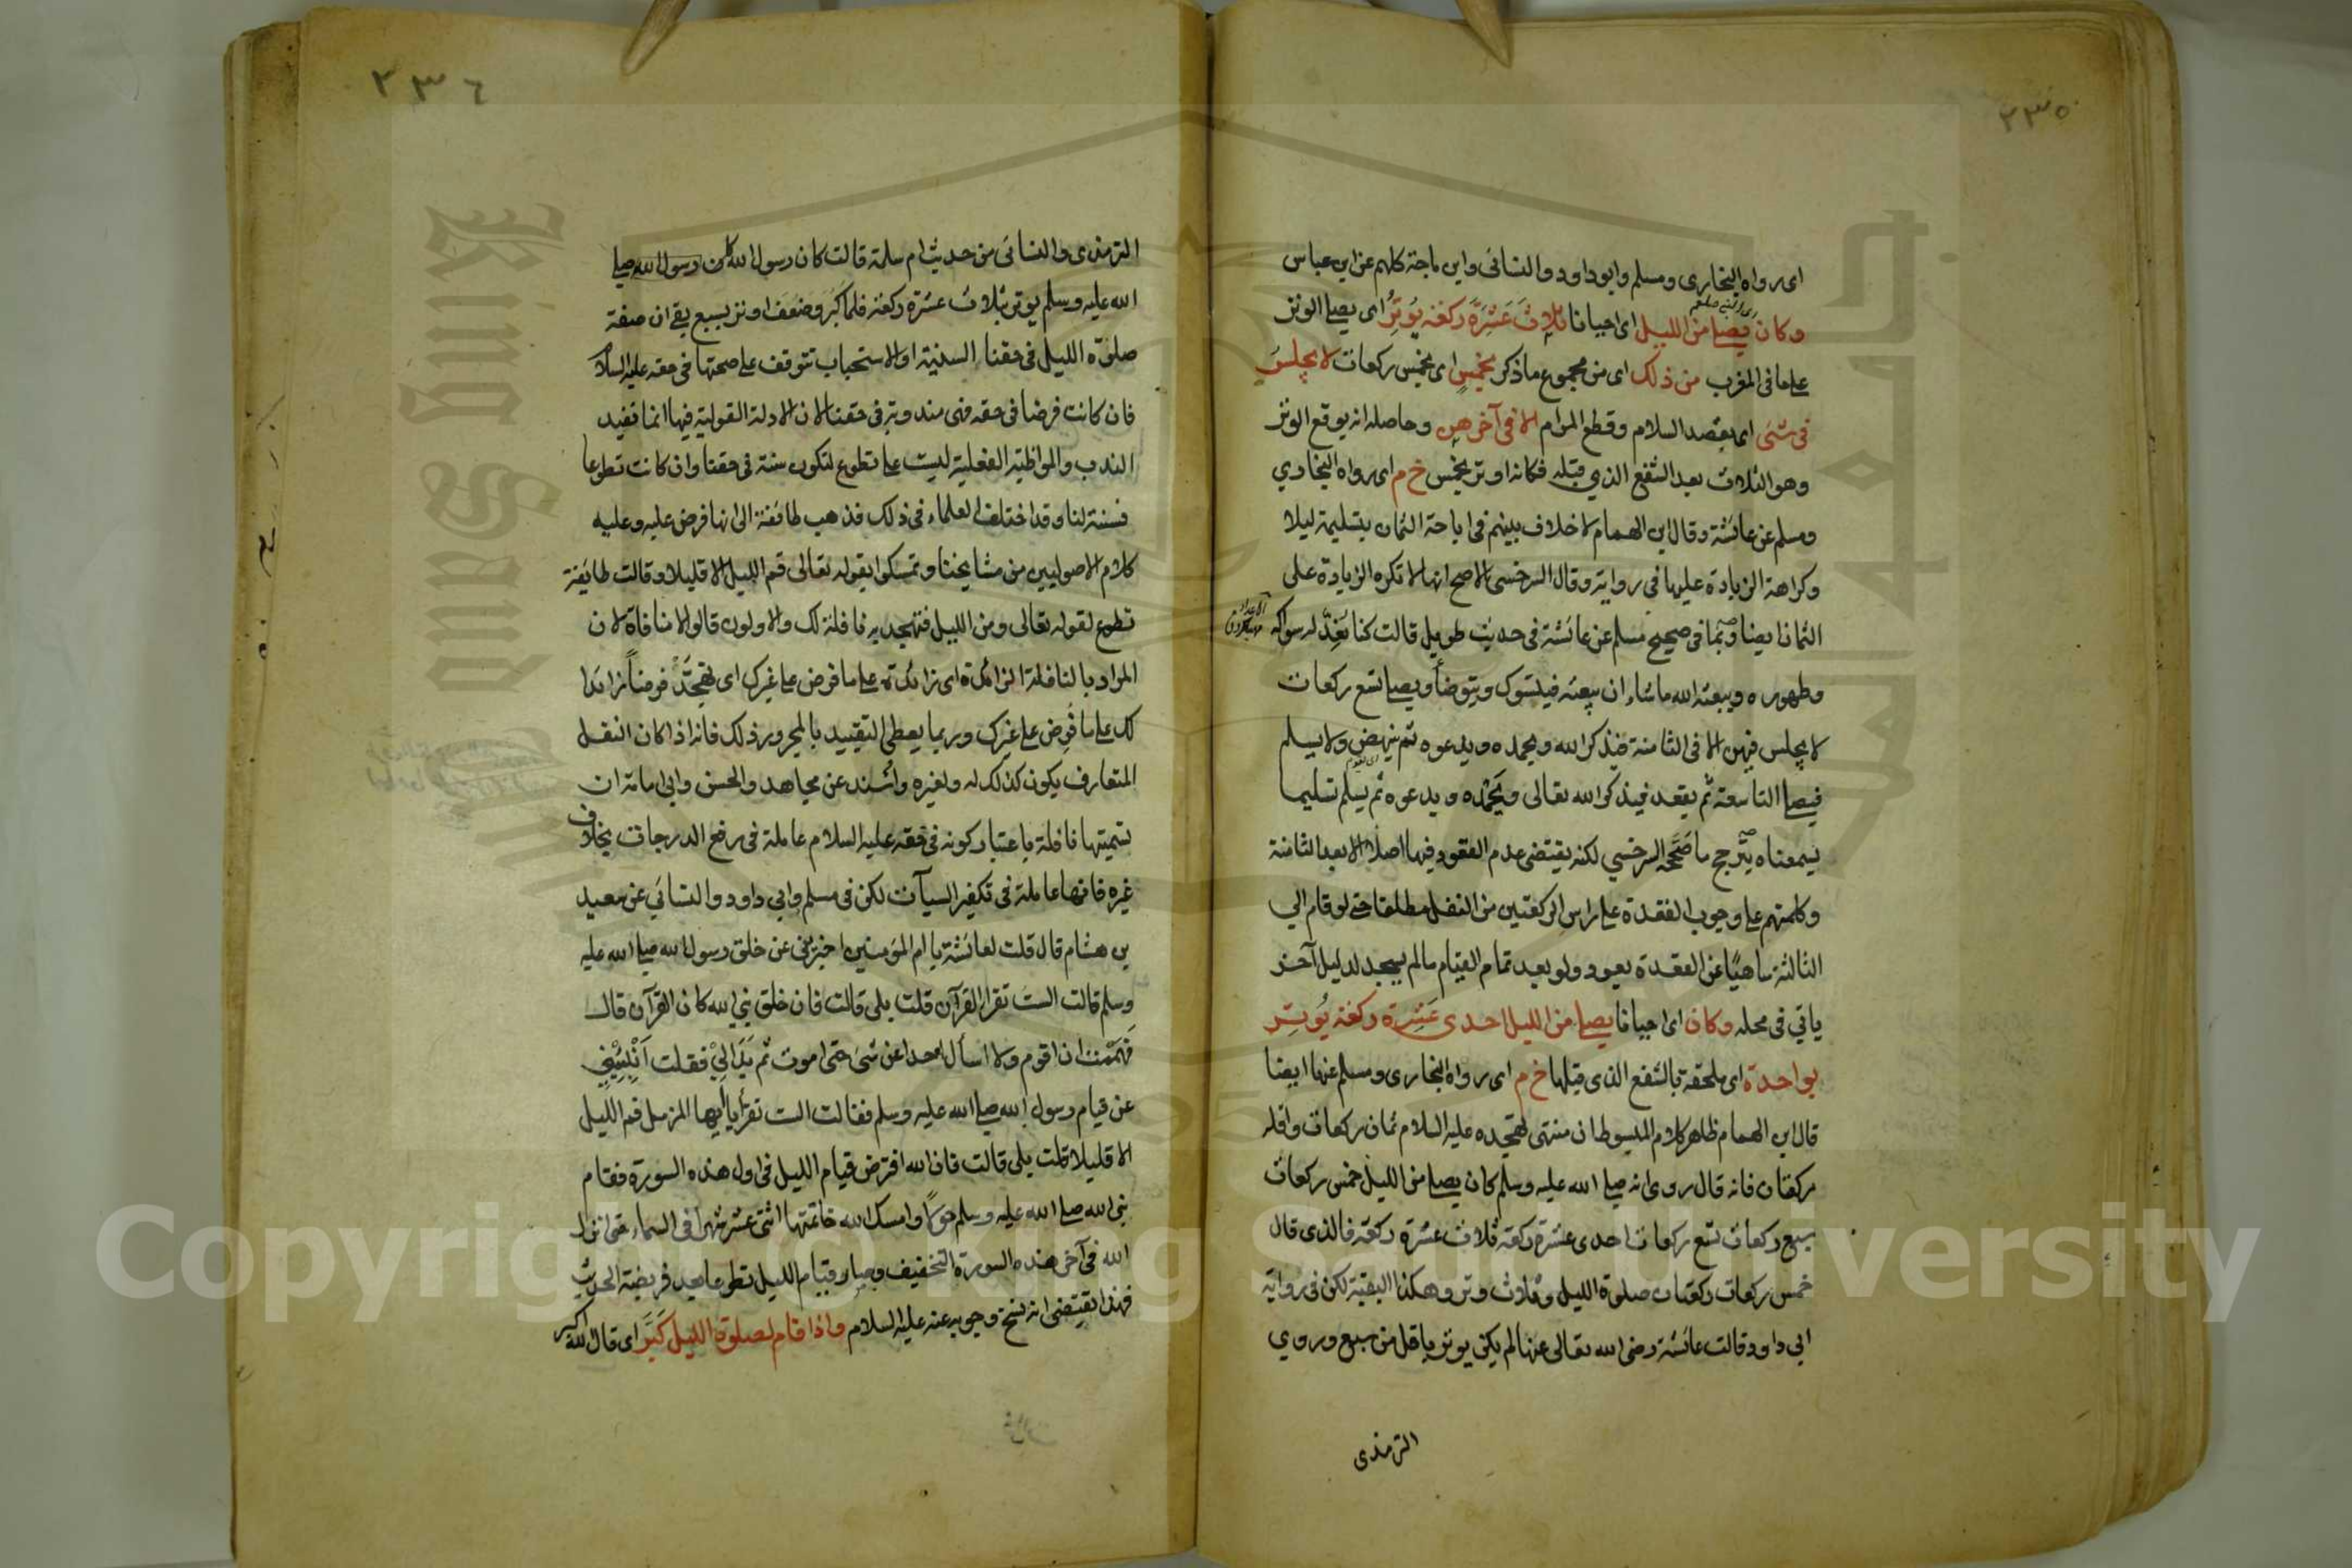 ٢٣٥
اى رواه البخارى ومسلم وابو داود والنسائى وابن ماجة كلهم عن ابن عباس
وكان يصلي من الليل اى احيانا ثلاث عَشْرَةَ ركعة يُوتِرُ اى يصلي الوتر
على ما فى المغرب من ذلك اى من مجموع ما ذكر بخمسٍ اى بخمس ركعات لا يجلسُ
فى شئ اى بقصد السلام وقطع المرام الا فى آخرهن وحاصله انه يوقع الوتر
وهو الثلاث بعد الشفع الذي قبله فكانه اوتر بخمس خ م اى رواه البخاري
ومسلم عن عائشة وقال ابن الهمام لا خلاف بينهم فى اباحة الثمان بتسليمة ليلا
وكراهة الزيادة عليها فى رواية وقال السرخسى الاصح انها لا تكره الزيادة على
الثمان ايضا وبما فى صحيح مسلم عن عائشة فى حديث طويل قالت كنا نُعِدّ له سواكه
وطهوره ويبعثه الله ما شاء ان يبعثه فيتسوك ويتوضأ ويصلي تسع ركعات
لا يجلس فيهن الا فى الثامنة فيذكر الله ويحمده ويدعوه ثم ينهض ولا يسلم
فيصلي التاسعة ثم يقعد فيذكر الله تعالى ويَحْمَده ويدعوه ثم يسلم تسليما
يسمعناه يترجح ما صَحَّحه السرخسي لكنه يقتضى عدم القعود فيها اصلا الا بعد الثامنة
وكلمتهم على وجوب القعدة على راس الركعتين من النفل مطلقا حتى لو قام الي
الثالثة ساهيًا عن القعدة يعود ولو بعد تمام القيام ما لم يسجد لدليل آخر
ياتي فى محله وكان اى احيانا يصلي من الليل احدى عَشْرة ركعة يُوتِر
بواحدة اى ملحقة بالشفع الذى قبلها خ م اى رواه البخارى ومسلم عنها ايضا
قال ابن الهمام ظاهر كلام المبسوط ان منتهى تهجده عليه السلام ثمان ركعات واقله
ركعتان فانه قال روى انه صلي الله عليه وسلم كان يصلي من الليل خمس ركعات
سبع ركعات تسع ركعات احدى عشرة ركعة ثلاث عشرة ركعة فالذى قال
خمس ركعات ركعتان صلوة الليل وثلاث وتر وهكذا البقية لكن فى رواية
ابى داود قالت عائشة رضى الله تعالى عنها لم يكن يوتر باقل من سبع وروي
الترمذى
٢٣٦
الترمذى والنسائى من حديث ام سلمة قالت كان رسول الله كان رسول الله صلي
الله عليه وسلم يوتر بثلاث عشرة ركعة فلما كَبُرَ وضَعُفَ اوتر بسبع بقي ان صفة
صلوة الليل فى حقنا السنية او الاستحباب تتوقف على صفتها فى حقه عليه السلام
فان كانت فرضا فى حقه فهى مندوبة فى حقنا لان الادلة القولية فيها انما تفيد
الندب والمواظبة الفعلية ليست على تطوع لتكون سنة فى حقنا وان كانت تطوعا
فسنة لنا وقد اختلف العلماء فى ذلك فذهب طائفة الى انها فرض عليه وعليه
كلام الاصوليين من مشايخنا وتمسكوا بقوله تعالى قم الليل الا قليلا وقالت طايفة
تطوع لقوله تعالى ومن الليل فتهجد به نافلة لك والاولون قالوا لا منافاة لان
المراد بالنافلة الزائدة اى زائدة على ما فرض على غيرك اى تَهَجَّدْ فرضاً زائدا
لك على ما فُرِض على غيرك وربما يعطى التقييد بالمجرور ذلك فانه اذا كان النفل
المتعارف يكون كذلك له ولغيره واُسند عن مجاهد والحسن وابى امامة ان
تسميتها نافلة باعتبار كونه فى حقه عليه السلام عاملة فى رفع الدرجات بخلاف
غيره فانها عاملة فى تكفير السيآت لكن فى مسلم وابى داود والنسائى عن سعيد
بن هشام قال قلت لعائشة يا ام المؤمنين اخبرينى عن خلق رسول الله صلي الله عليه
وسلم قالت الستَ تقرا القرآن قلت بلى قالت فان خلق نبي الله كان القرآن قال
فهَمَمْت ان اقوم ولا اسأل احدا عن شئ حتى اموت ثم بَدَا لِيْ فقلت اَنْبِئِيْنِي
عن قيام رسول الله صلي الله عليه وسلم فقالت الست تقرأ يا ايها المزمل قم الليل
الا قليلا قلت بلى قالت فان الله افترض قيام الليل فى اول هذه السورة فقام
نبى الله صلي الله عليه وسلم حولًا وامسك الله خاتمتها اثنى عشر شهرا فى السماء حتى انزل
الله فى آخر هذه السورة التخفيف وصار قيام الليل تطوعا بعد فريضة الحديث
فهذا يقتضى انه نسخ وجوبه عنه عليه السلام واذا قام لصلوة الليل كَبَّرَ اى قال الله اكبر
Copyright © King Saud University